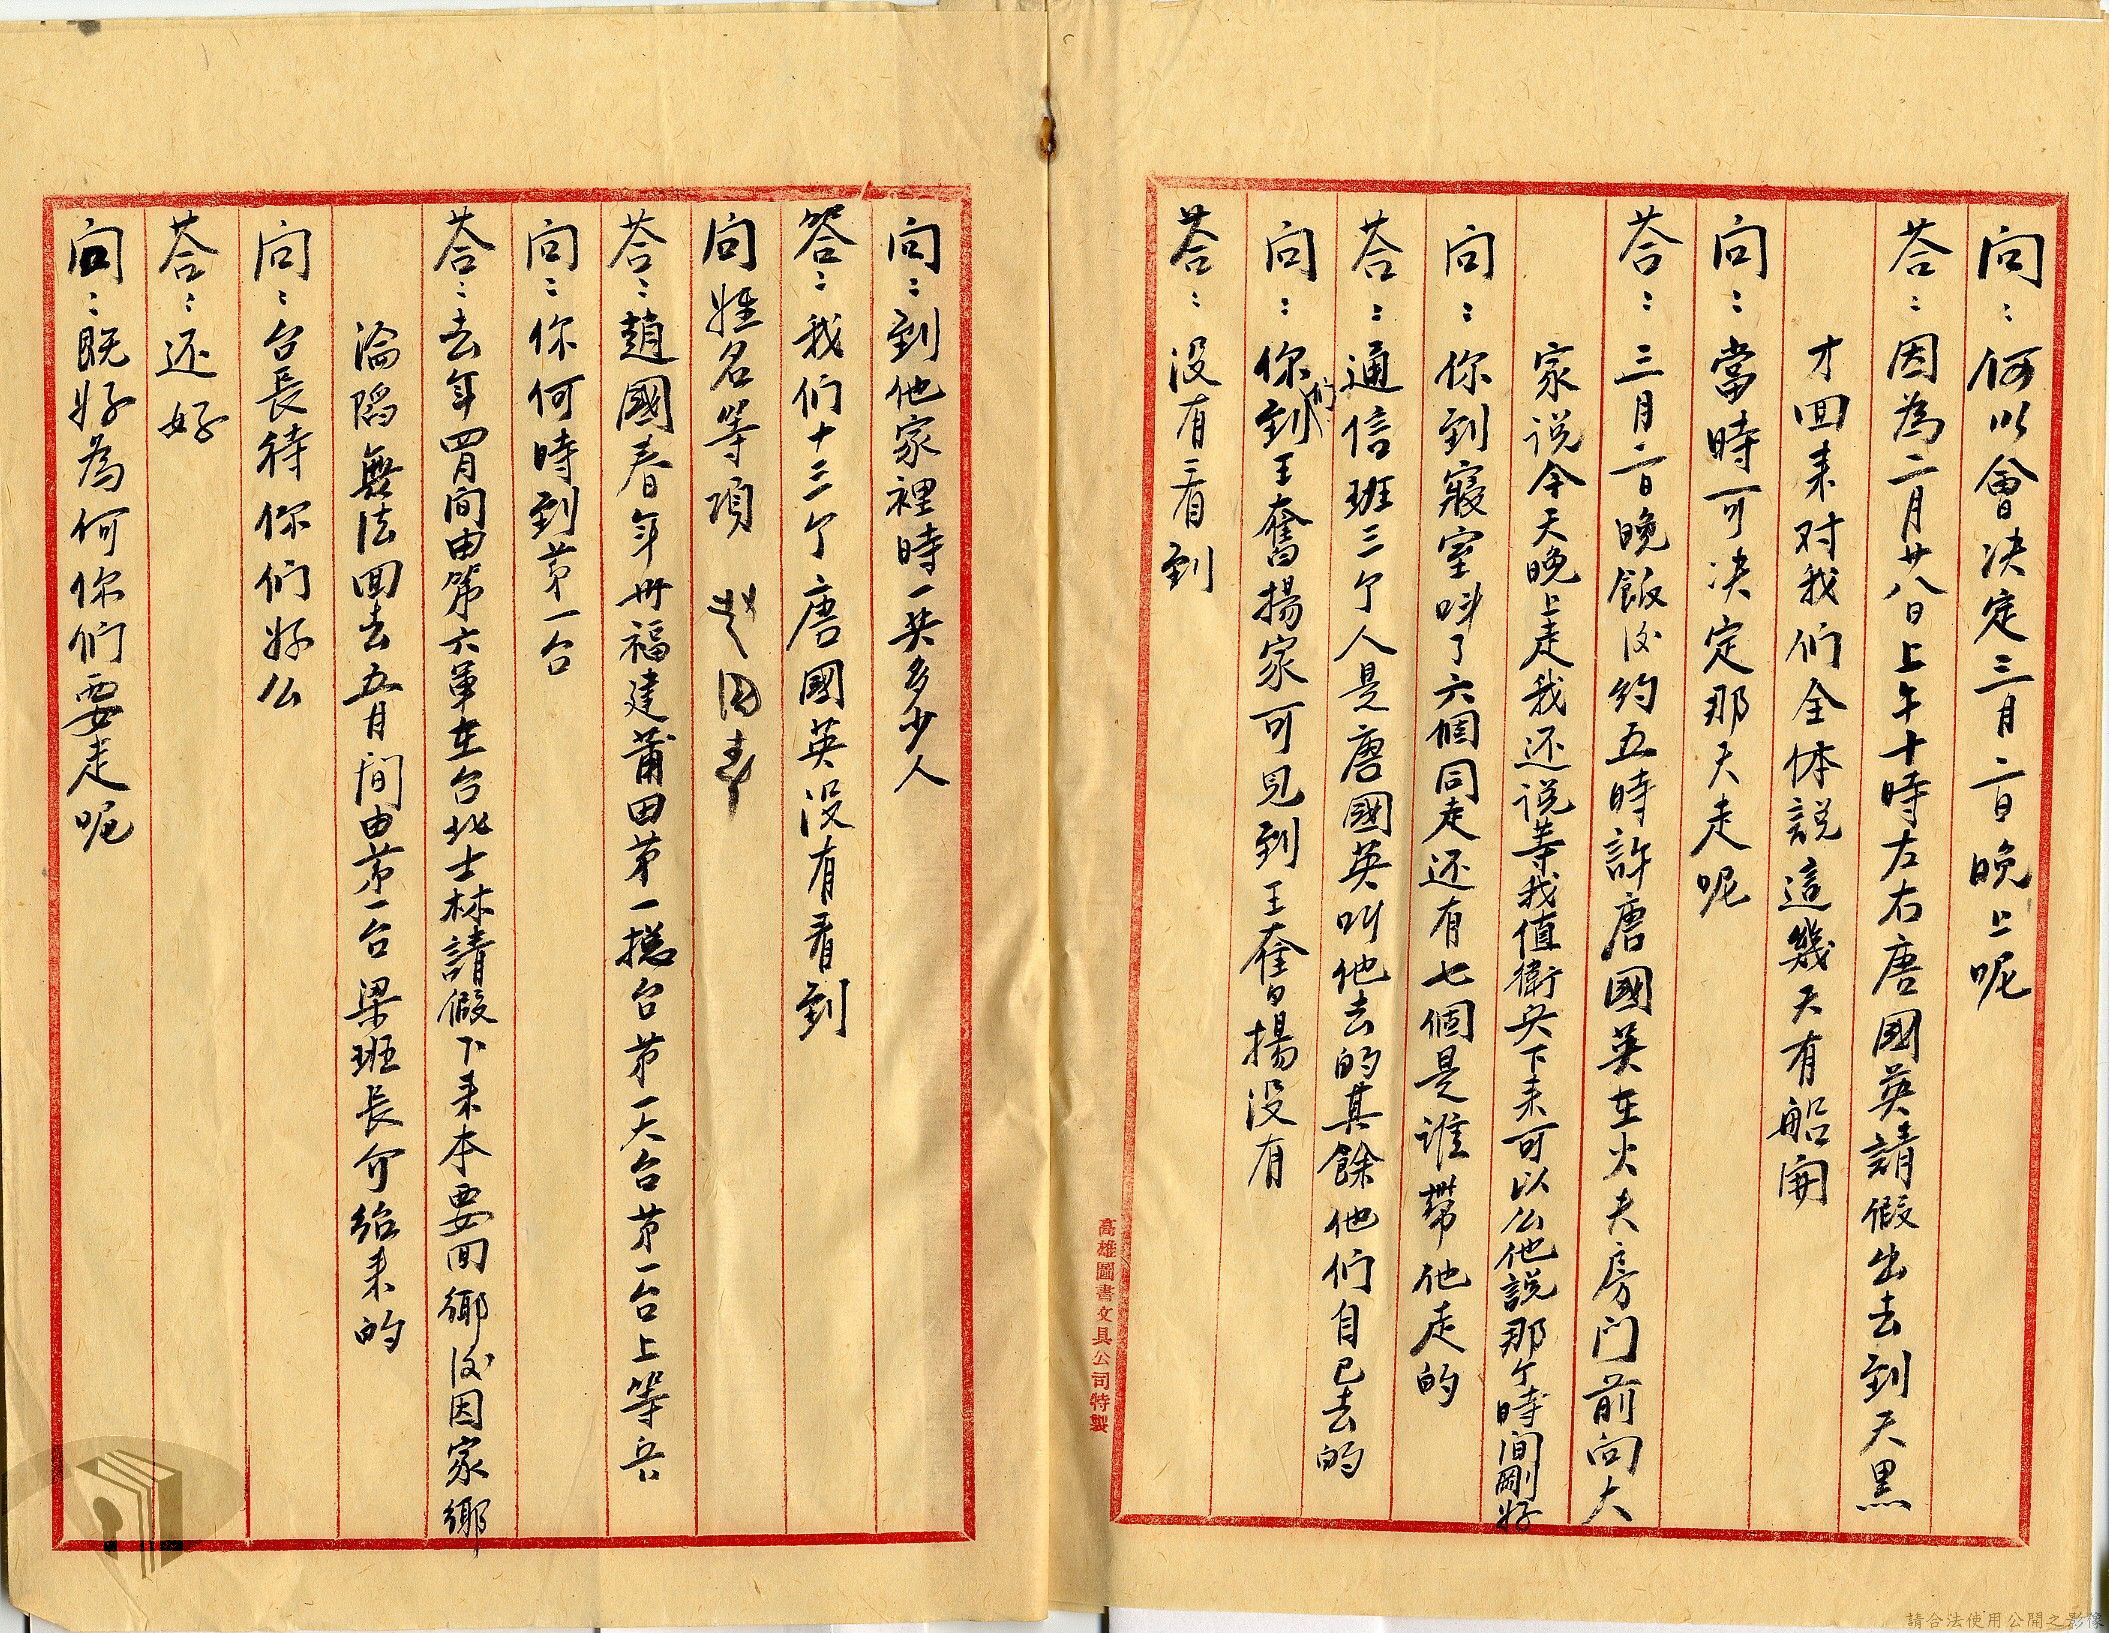 问：何以會决定三月二日晚上呢
荅：因為二月廿八日上午十時左右唐國英請假出去到天黒
才回来对我们全体說這幾天有船開
问：當時可决定那天走呢
荅：三月二日晚飯后约五時許唐國英在火夫房门前向大
家说今天晚上走我还说等我值衛兵下来可以么他說那个時間剛好
问：你到寢室呌了六個同走还有七個是谁帶他走的
荅：通信班三个人是唐國英叫他去的其餘他们自己去的
问：你们到王奮揚家可見到王奮揚没有
荅：没有看到
高雄圖書文具公司特製
问：到他家裡時一共多少人
答：我们十三个唐國英没有看到
问姓名等項 赵国春
荅：趙國春年卅福建莆田第一總台第一大台第一台上等兵
问：你何時到第一台
荅：去年四月间由第六軍在台北士林請假下来本要回鄉后因家鄉
淪陷無法回去五月间由第一台梁班長介绍来的
问：台長待你们好么
荅：还好
问：既好為何你们要走呢
請合法使用公開之影像